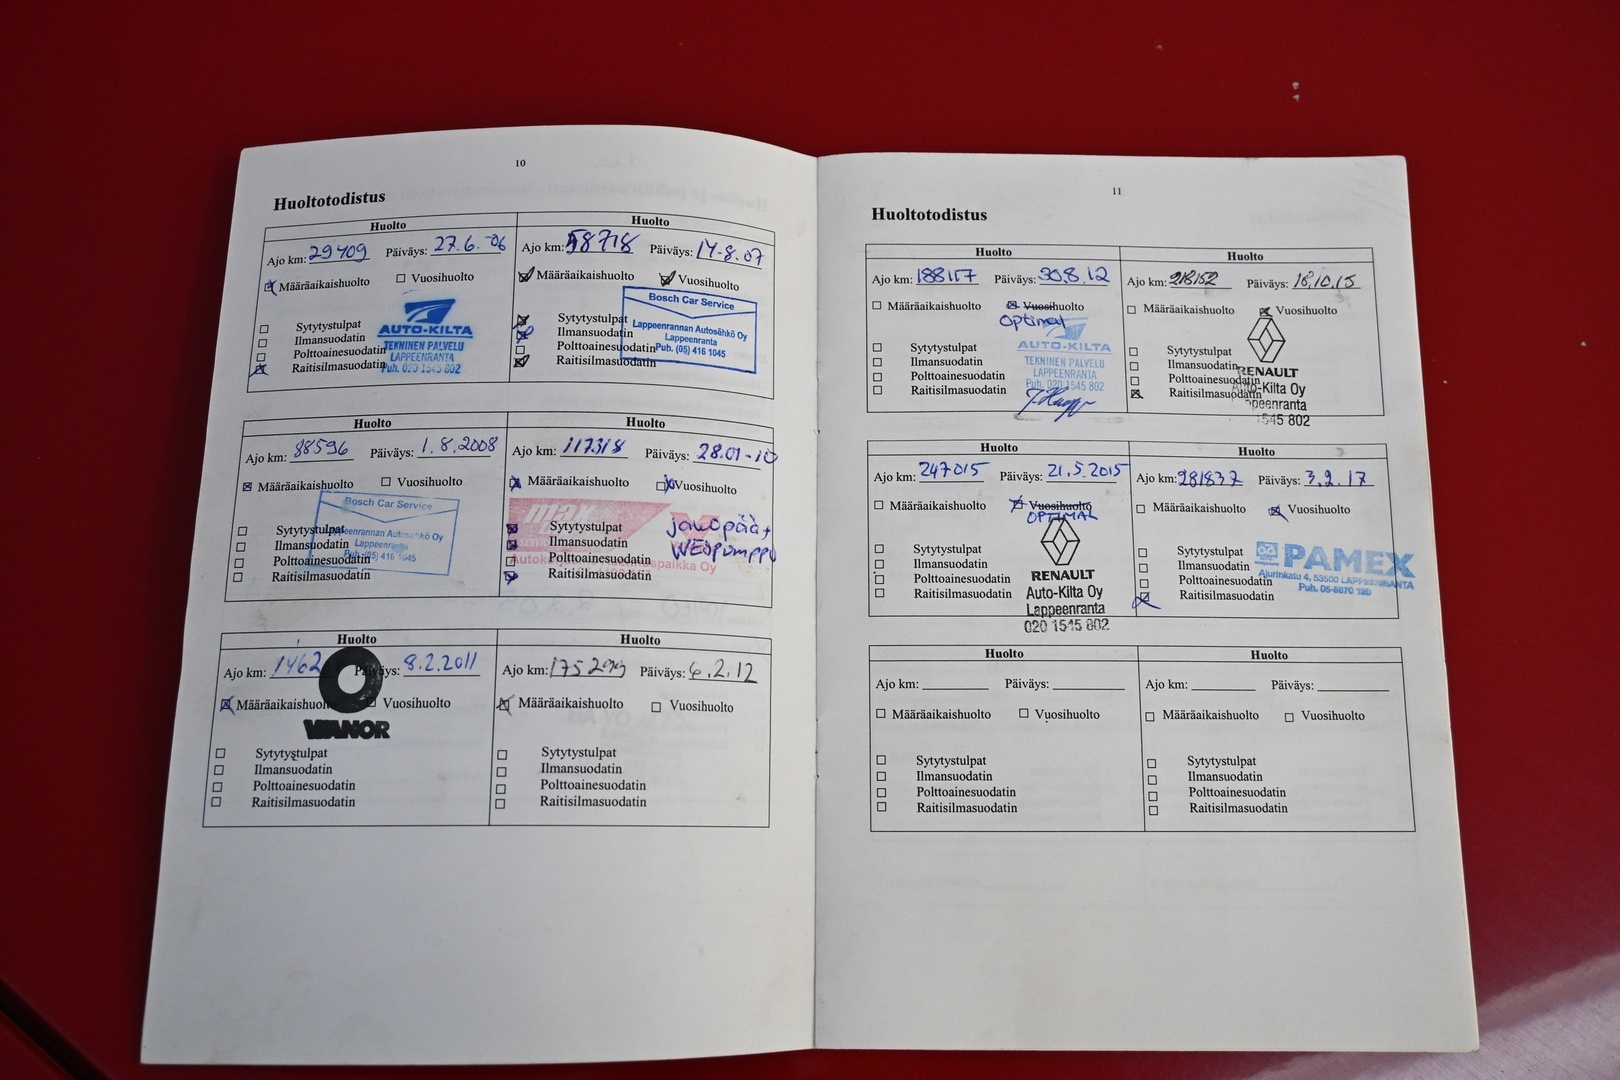 10
Huoltotodistus
Huolto
Ajo km: 29409 Päiväys: 27.6.-06
Määräaikaishuolto Vuosihuolto
Sytytystulpat
Ilmansuodatin
Polttoainesuodatin
Raitisilmasuodatin
AUTO-KILTA
TEKNINEN PALVELU
LAPPEENRANTA
Puh. 020 1545 802
Huolto
Ajo km: 58718 Päiväys: 14-8.07
Määräaikaishuolto Vuosihuolto
Sytytystulpat
Ilmansuodatin
Polttoainesuodatin
Raitisilmasuodatin
Bosch Car Service
Lappeenrannan Autosähkö Oy
Lappeenranta
Puh. (05) 416 1045
Huolto
Ajo km: 88596 Päiväys: 1.8.2008
Määräaikaishuolto Vuosihuolto
Sytytystulpat
Ilmansuodatin
Polttoainesuodatin
Raitisilmasuodatin
Bosch Car Service
Lappeenrannan Autosähkö Oy
Lappeenranta
Puh. (05) 416 1045
Huolto
Ajo km: 117318 Päiväys: 28.01-10
Määräaikaishuolto Vuosihuolto
Sytytystulpat
Ilmansuodatin
Polttoainesuodatin
Raitisilmasuodatin
max
jakopää+
VESPUMPPU
Huolto
Ajo km: 1462 Päiväys: 8.2.2011
Määräaikaishuolto Vuosihuolto
VIANOR
Sytytystulpat
Ilmansuodatin
Polttoainesuodatin
Raitisilmasuodatin
Huolto
Ajo km: 175299 Päiväys: 6.2.12
Määräaikaishuolto Vuosihuolto
Sytytystulpat
Ilmansuodatin
Polttoainesuodatin
Raitisilmasuodatin
11
Huoltotodistus
Huolto
Ajo km: 188157 Päiväys: 30.8.12
Määräaikaishuolto Vuosihuolto
Optimal
Sytytystulpat
Ilmansuodatin
Polttoainesuodatin
Raitisilmasuodatin
AUTO-KILTA
TEKNINEN PALVELU
LAPPEENRANTA
Puh. 020 1545 802
Huolto
Ajo km: 218152 Päiväys:
Määräaikaishuolto Vuosihuolto
Sytytystulpat
Ilmansuodatin
Polttoainesuodatin
Raitisilmasuodatin
RENAULT
Auto-Kilta Oy
Lappeenranta
1545 802
Huolto
Ajo km: 247015 Päiväys: 21.5.2015
Määräaikaishuolto Vuosihuolto
OPTIMAL
Sytytystulpat
Ilmansuodatin
Polttoainesuodatin
Raitisilmasuodatin
RENAULT
Auto-Kilta Oy
Lappeenranta
020 1545 802
Huolto
Ajo km: 281837 Päiväys: 3.2.17
Määräaikaishuolto Vuosihuolto
Sytytystulpat
Ilmansuodatin
Polttoainesuodatin
Raitisilmasuodatin
PAMEX
Ajurinkatu 4, 53500 LAPPEENRANTA
Puh. 05-6870 120
Huolto
Ajo km: Päiväys:
Määräaikaishuolto Vuosihuolto
Sytytystulpat
Ilmansuodatin
Polttoainesuodatin
Raitisilmasuodatin
Huolto
Ajo km: Päiväys:
Määräaikaishuolto Vuosihuolto
Sytytystulpat
Ilmansuodatin
Polttoainesuodatin
Raitisilmasuodatin